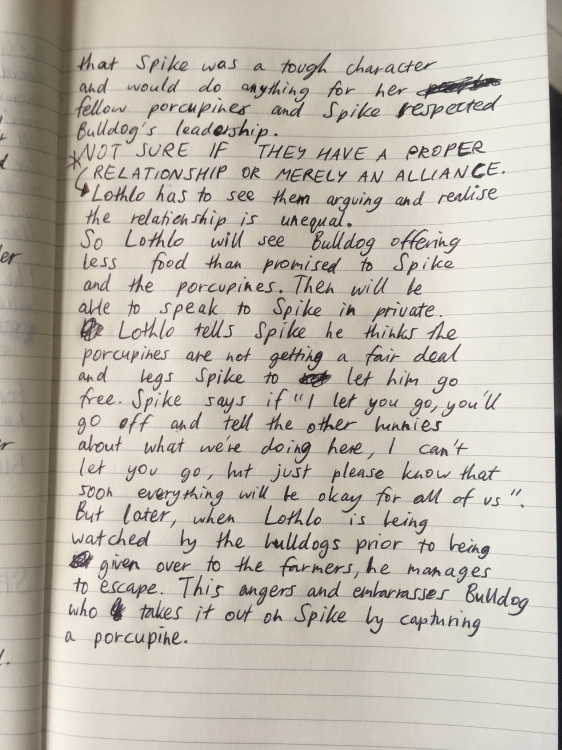 that Spike was a tough character
and would do anything for her
fellow porcupines and Spike respected
Bulldog's leadership.
*NOT SURE IF THEY HAVE A PROPER
RELATIONSHIP OR MERELY AN ALLIANCE.
Lothlo has to see them arguing and realise
the relationship is unequal.
So Lothlo will see Bulldog offering
less food than promised to Spike
and the porcupines. Then will be
able to speak to Spike in private.
Lothlo tells Spike he thinks the
porcupines are not getting a fair deal
and begs Spike to let him go
free. Spike says if "I let you go, you'll
go off and tell the other bunnies
about what we're doing here, I can't
let you go, but just please know that
soon everything will be okay for all of us".
But later, when Lothlo is being
watched by the bulldogs prior to being
given over to the farmers, he manages
to escape. This angers and embarrasses Bulldog
who takes it out on Spike by capturing
a porcupine.